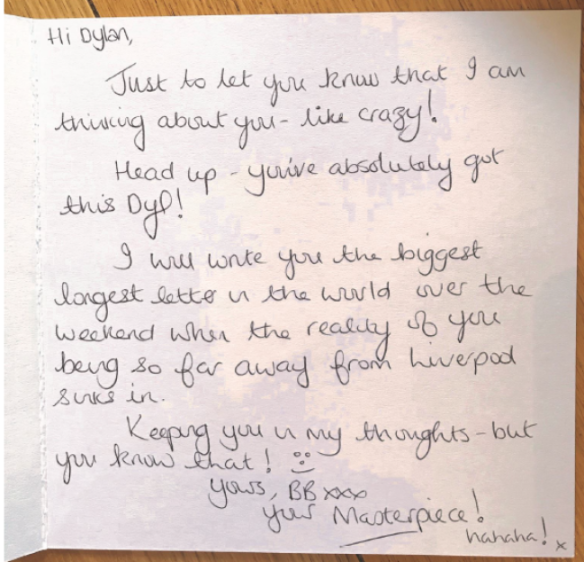 Hi Dylan,
Just to let you know that I am
thinking about you - like crazy!
Head up - you've absolutely got
this Dyl!
I will write you the biggest
longest letter in the world over the
weekend when the reality of you
being so far away from Liverpool
sinks in.
Keeping you in my thoughts - but
you know that! :)
yours, BB xxx
your Masterpiece!
hahaha! x